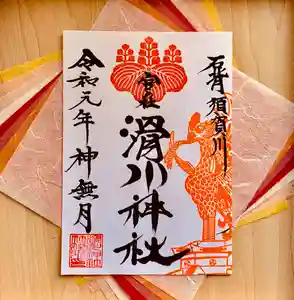 石背 須賀川
滑川神社
令和元年 神無月